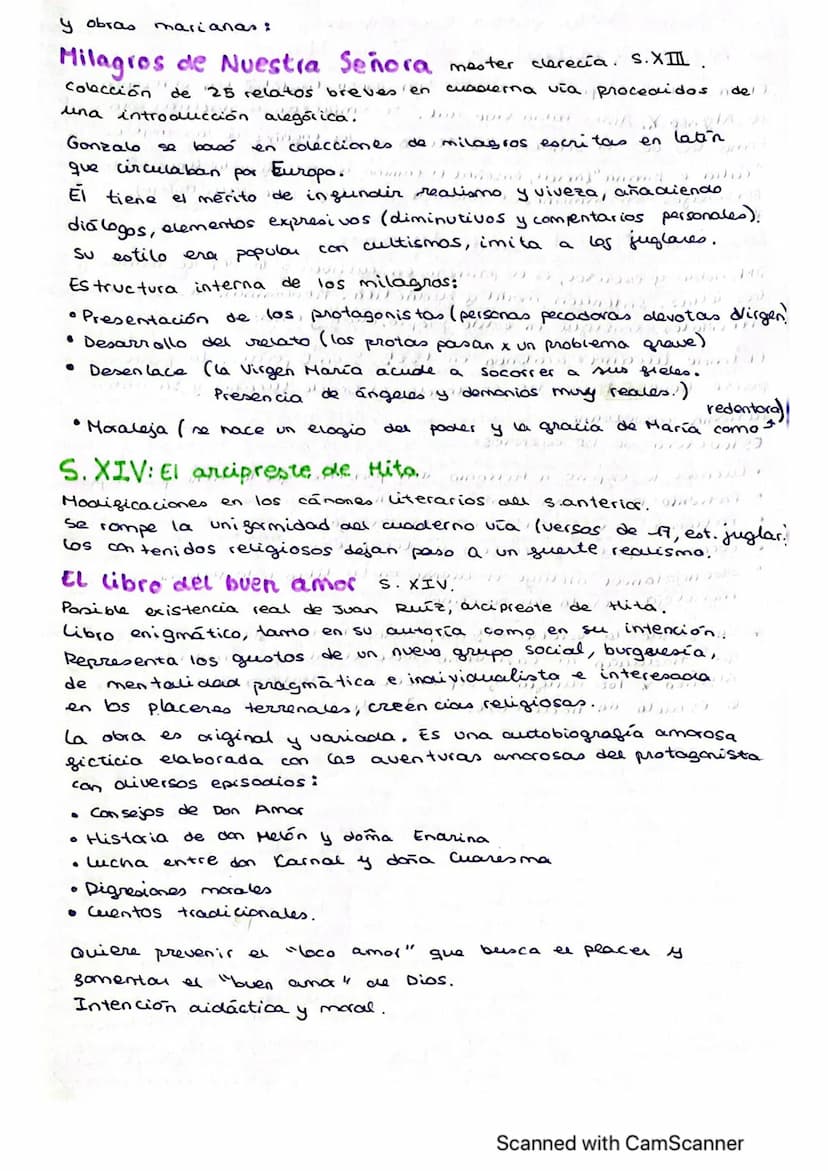 y obras marianas:
Milagros de Nuestra Señora mester clerecía. S.XIII.
Colección de 25 relatos breves en cuaderna vía procedidos de
una introducción alegórica.
Gonzalo se basó en colecciones de milagros escritas en latín
que circulaban por Europa.
Él tiene el mérito de infundir realismo y viveza, añadiendo
diálogos, elementos expresivos (diminutivos y comentarios personales).
Su estilo era popular con cultismos, imita a los juglares.
Estructura interna de los milagros:
• Presentación de los protagonistas (personas pecadoras devotas Virgen)
• Desarrollo del relato (los protas pasan x un problema grave)
• Desenlace (la Virgen María acude a socorrer a sus fieles.
Presencia de ángeles y demonios muy reales.)
• Moraleja (se hace un elogio del poder y la gracia de María como redentora)
S. XIV: El arcipreste de Hita.
Modificaciones en los cánones literarios del s.anterior.
Se rompe la uniformidad del cuaderno vía (versos de 17, est. juglar.
Los contenidos religiosos dejan paso a un fuerte realismo.
El libro del buen amor S. XIV.
Posible existencia real de Juan Ruíz, arcipreste de Hita.
Libro enigmático, tanto en su autoría como en su intención.
Representa los gustos de un nuevo grupo social, burguesía,
de mentalidad pragmática e individualista e interesada
en los placeres terrenales, creencias religiosas.
La obra es original y variada. Es una autobiografía amorosa
ficticia elaborada con las aventuras amorosas del protagonista
con diversos episodios:
• Consejos de Don Amor
• Historia de don Melón y doña Enarina
• Lucha entre don Karnal y doña Cuaresma
• Digresiones morales
• Cuentos tradicionales.
Quiere prevenir el "loco amor" que busca el placer y
fomentar el "buen amor" de Dios.
Intención didáctica y moral.
Scanned with CamScanner